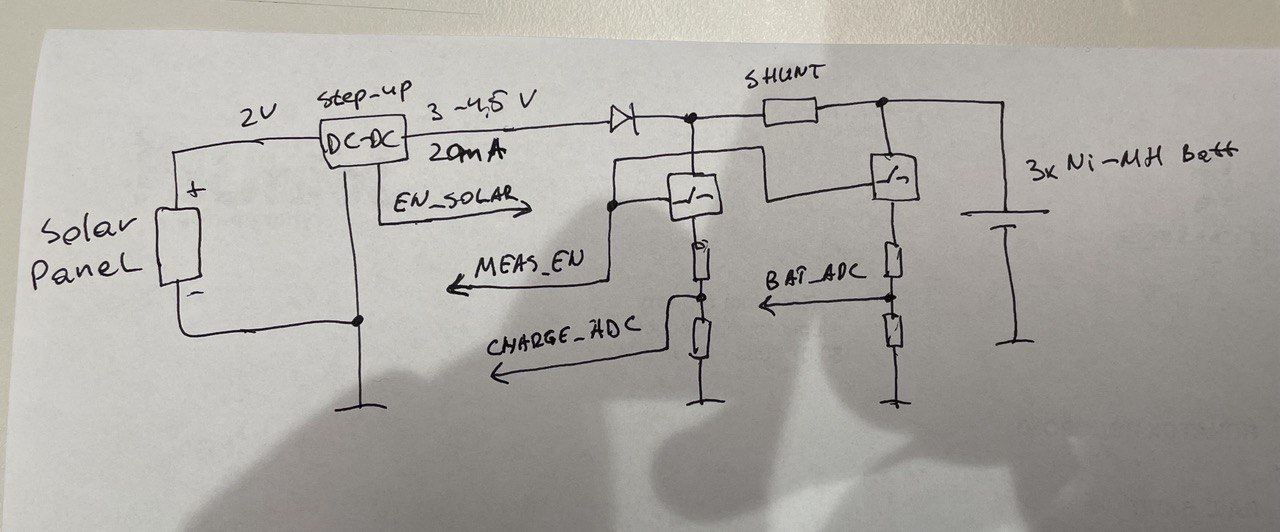 SHUNT
Step-up
2V
DC-DC
3-4,5 V
20mA
3x Ni-MH Batt
+
EN_SOLAR
Solar
Panel
-
MEAS_EN
BAT_ADC
CHARGE_ADC